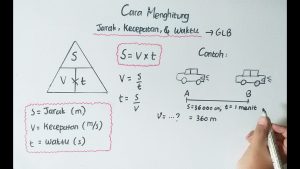 Cara Menghitung
Jarak, Kecepatan, & Waktu → GLB
S
V x t
S = V x t
V = S/t
t = S/V
S = Jarak (m)
V = Kecepatan (m/s)
t = Waktu (s)
Contoh:
A B
S = 36000 cm, t = 1 menit
= 360 m
V = ...?